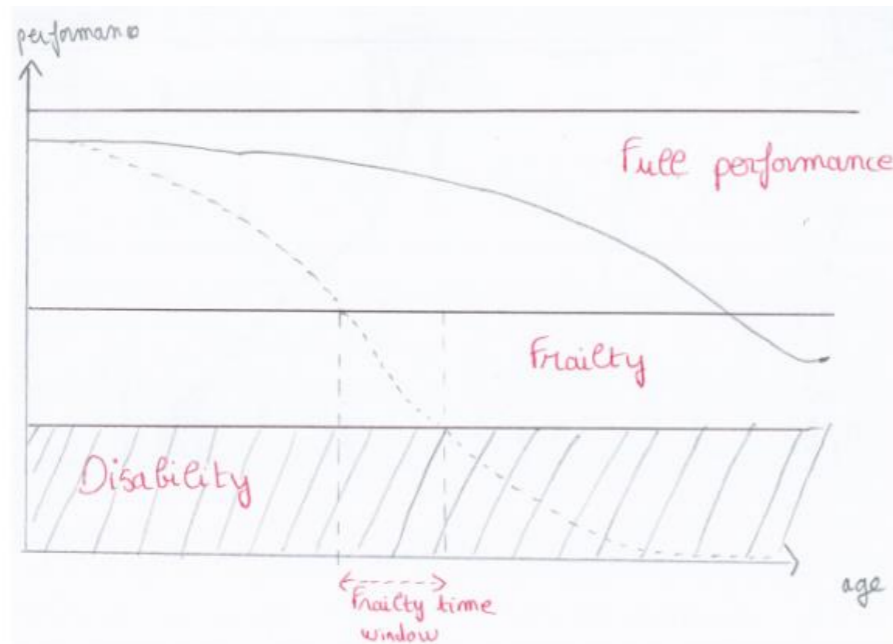 performance
Full performance
Frailty
Disability
age
Frailty time
window